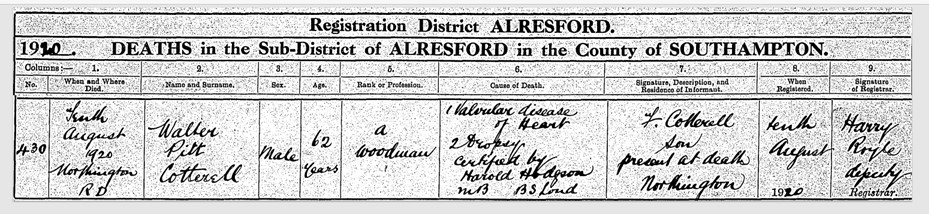 Registration District ALRESFORD.
1920. DEATHS in the Sub-District of ALRESFORD in the County of SOUTHAMPTON.
Columns:— 1. 2. 3. 4. 5. 6. 7. 8. 9.
No. When and Where Died. Name and Surname. Sex. Age. Rank or Profession. Cause of Death. Signature, Description, and Residence of Informant. When Registered. Signature of Registrar.
430
Tenth
August
1920
Northington
R D
Walter
Pitt
Cotterell
Male
62
Years
a
woodman
1 Valvular disease
of Heart
2 Dropsy
certified by
Harold Hodgson
MB BS Lond
F. Cotterell
son
present at death
Northington
tenth
August
1920
Harry
Royle
deputy
Registrar.